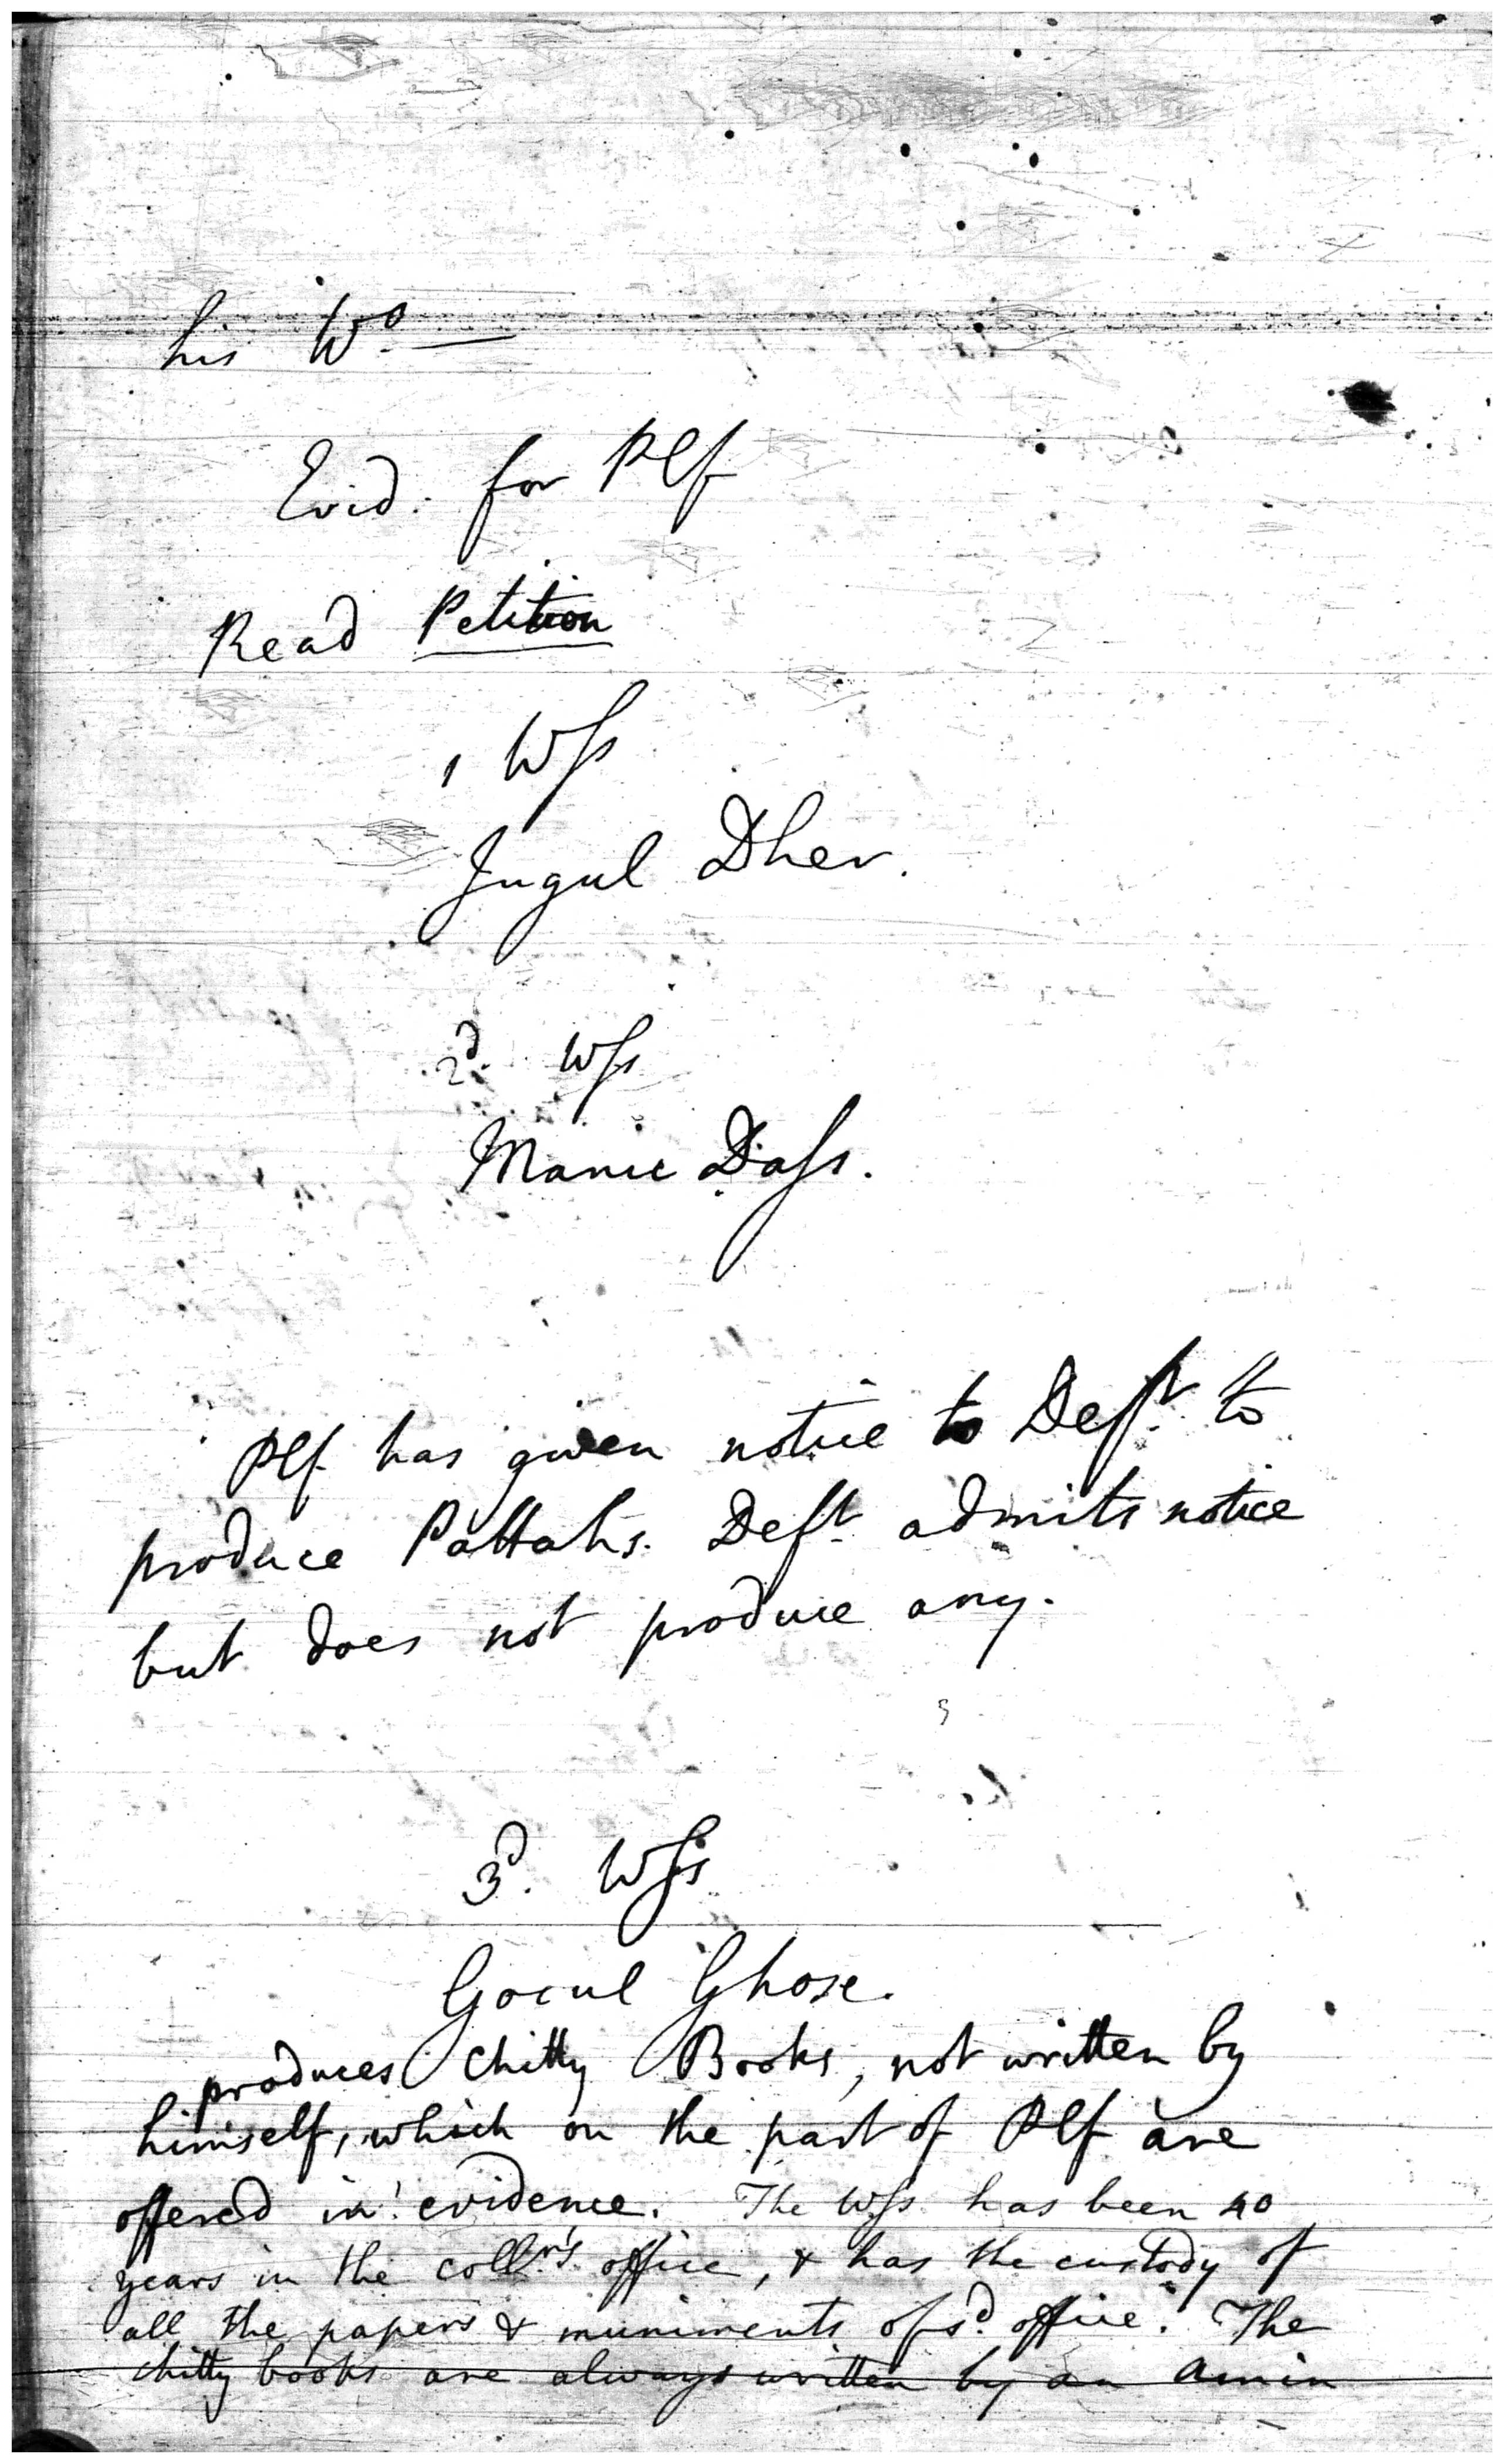 his W.o —
Evid. for Plf
Read Petition
1 Wss
Jugul Dher.
2d. Wss
Manic Dass.
Plf has given notice to Deft. to
produce Pattahs. Deft. admits notice
but does not produce any.
3d. Wss
Gocul Ghose.
produces Chitty Books, not written by
himself, which on the part of Plf are
offered in evidence. The Wss has been 40
years in the Collr's. office, & has the custody of
all the papers & muniments of sd. office. The
chitty books are always written by an Amin